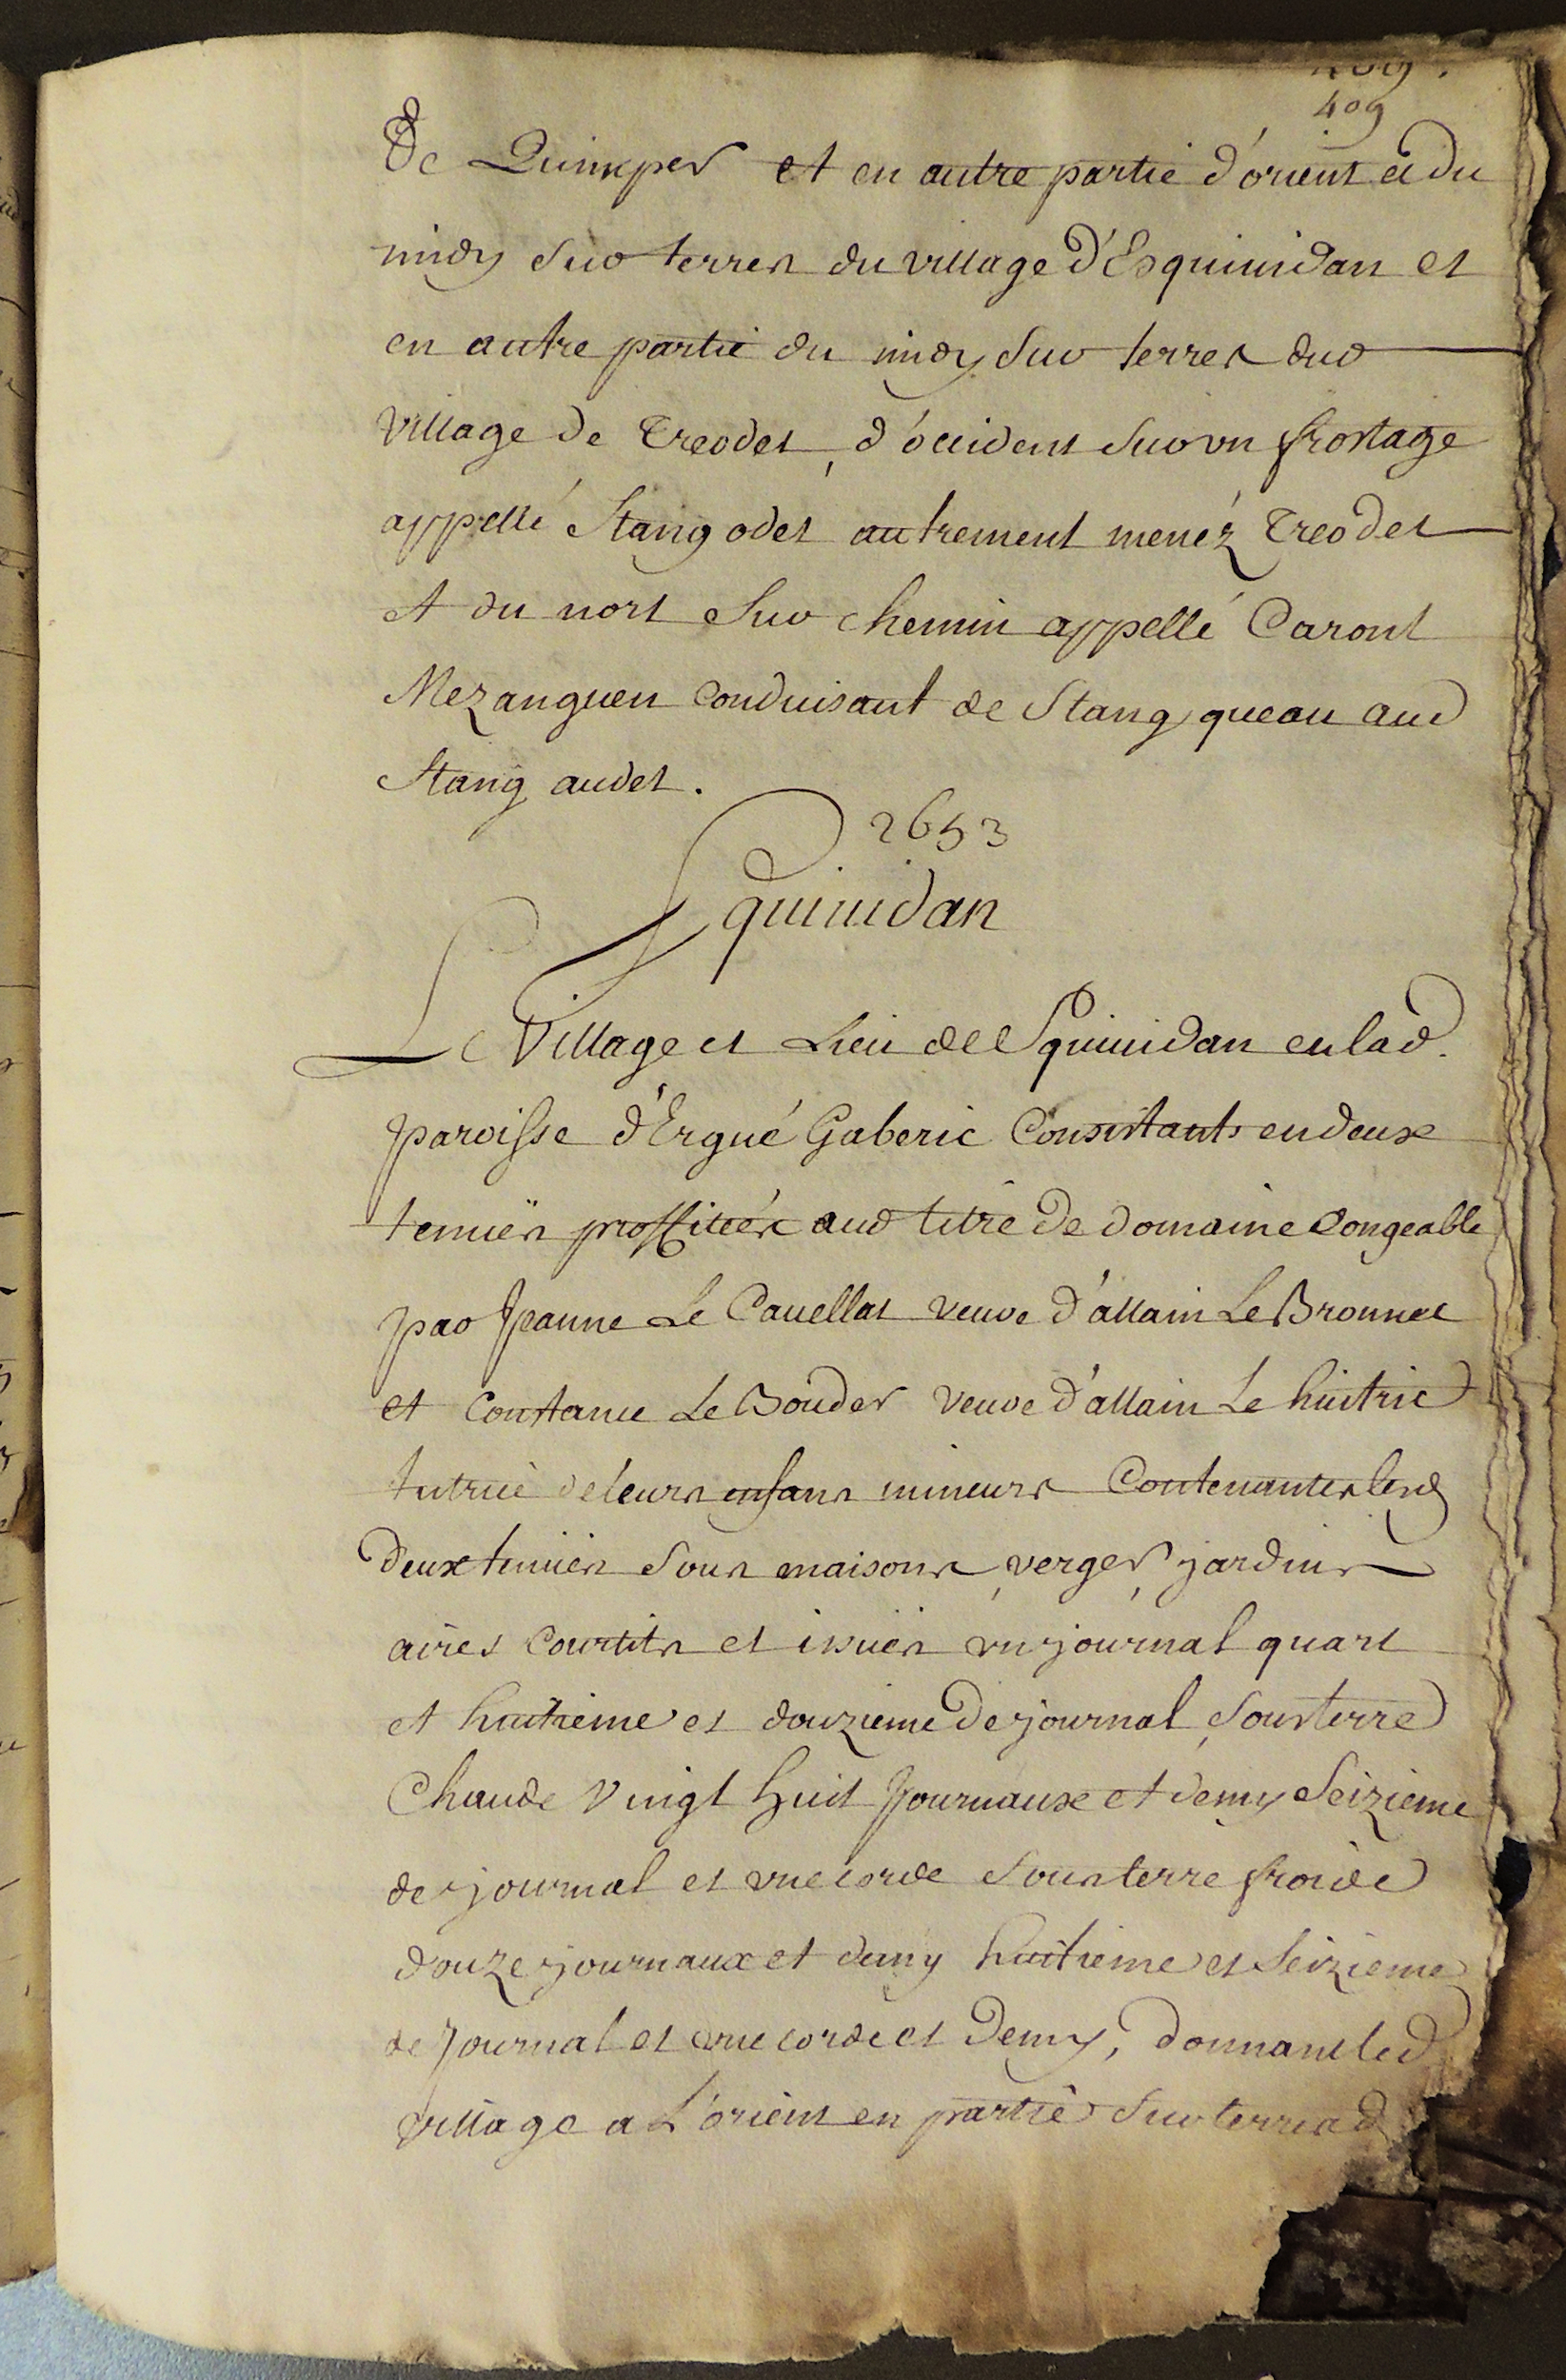 409
De Quimper et en autre partie d'orient et du
midy sur terres du village d'Esquinidan et
en autre partie du midy sur terres dud
village de Treodet, d'occident sur un frostage
appellé Stang odet autrement menéz Treodet
et du nort sur chemin appellé Caront
Mezanguen conduisant de Stang queau aud
Stang audet.
2653
Squinidan
Le Village et Lieu de Squinidan en lad.
paroisse d'Ergué Gaberic Consistants en deux
tenuës proffitéés aud titre de domaine Congeable
par Jeanne Le Cauellat veuve d'allain Le Bronnec
et Constance Le Bouder veuve d'allain Le huitric
tutrice de leurs enfans mineurs Contenantes lesd
deux tenües sous maisons, verger, jardins
aires Courtils et issuës un journal quart
et huitieme et douzieme de journal, sous terre
Chaude Vingt huit Journaux et demy Seizieme
de journal et une corde sous terre froide
douze journaux et demy huitieme et Seizieme
de Journal et une corde et Demy, donnant led
village a L'orient en partie sur terres d